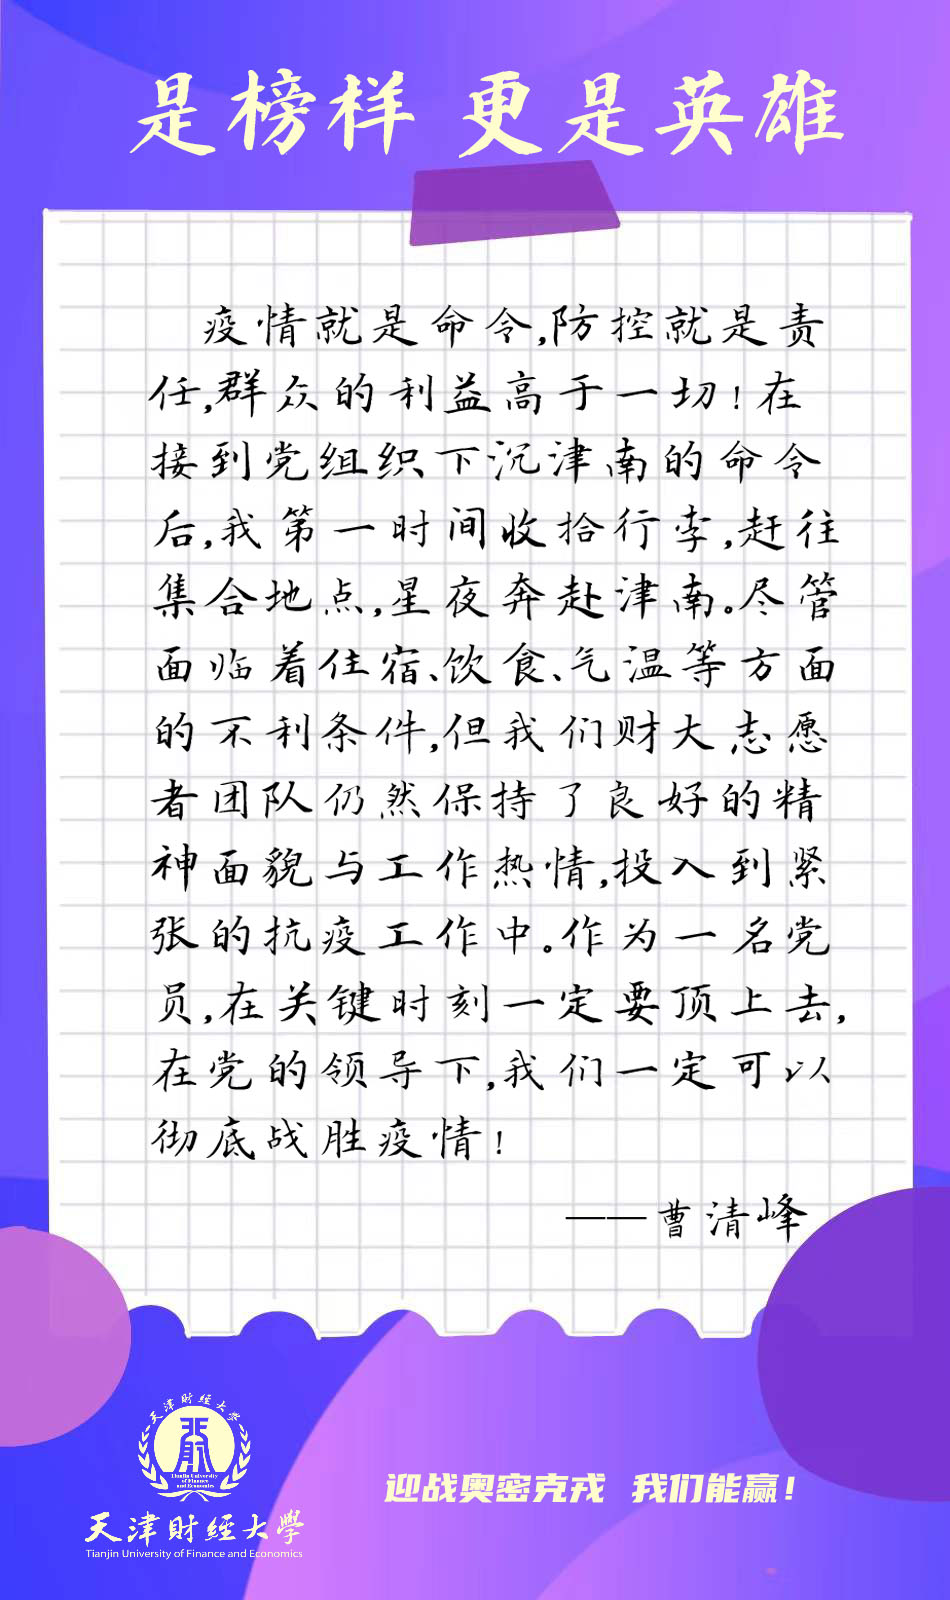 是榜样 更是英雄
疫情就是命令,防控就是责
任,群众的利益高于一切!在
接到党组织下沉津南的命令
后,我第一时间收拾行李,赶往
集合地点,星夜奔赴津南。尽管
面临着住宿、饮食、气温等方面
的不利条件,但我们财大志愿
者团队仍然保持了良好的精
神面貌与工作热情,投入到紧
张的抗疫工作中。作为一名党
员,在关键时刻一定要顶上去,
在党的领导下,我们一定可以
彻底战胜疫情!
——曹清峰
天津财经大學
Tianjin University
of Finance
and Economics
天津财經大學
Tianjin University of Finance and Economics
迎战奥密克戎 我们能赢!